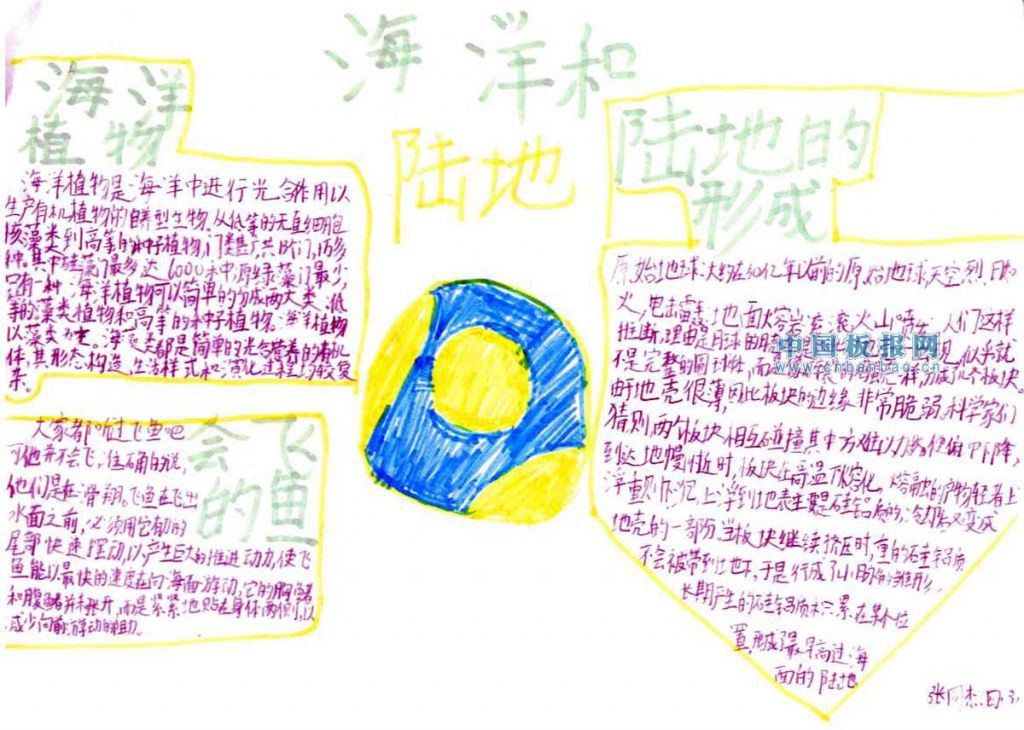 海洋和
陆地
海洋
植物
海洋植物是海洋中进行光合作用以
生产有机植物的自养型生物.从低等的无真细胞
核藻类到高等的种子植物,门类甚广,共13个门,1万多
种.其中硅藻门最多达6000种,原绿藻门最少,
只有一种.海洋植物可以简单的分成两大类:低
等的藻类植物和高等的种子植物。海洋植物
以藻类为主。海藻类都是简单的光合营养的有机
体,其形态构造、生活样式和演化过程均较复
杂。
会飞
的鱼
大家都听过飞鱼吧
可他并不会飞,准确的说,
他们是在滑翔。飞鱼在飞出
水面之前,必须用它们的
尾部快速摆动,以产生巨大的推进动力,使飞
鱼能以最快的速度在向海面游动,它的胸鳍
和腹鳍并未张开,而是紧紧地贴在身体两侧,以
减少向前游动的阻力。
陆地的
形成
原始地球:大约在40亿年以前的原始地球天空烈日
火,电击雷轰,地面大熔岩流滚火山喷 人们这样
推断理由是月球的
不是完整的圆球体,而 样,分成几个板块。
的地壳很薄,因此板块的边缘非常脆弱.科学家们
猜测,两个板块相互碰撞其中 下降,
到达地幔附近时,板块在高温下熔化。熔融的产物轻者上
浮重则下沉,上浮到地表主要是硅铝质的,冷却后又变成
地壳的一部份.当板块继续挤压时,重的硅铝质
不会被带到地下,于是行成了小小陆的雏形.
长期产生的硅铝质积累在某个位
置,形成了最早高过海
面的陆地
中国板报网
www.cnbanbao.cn